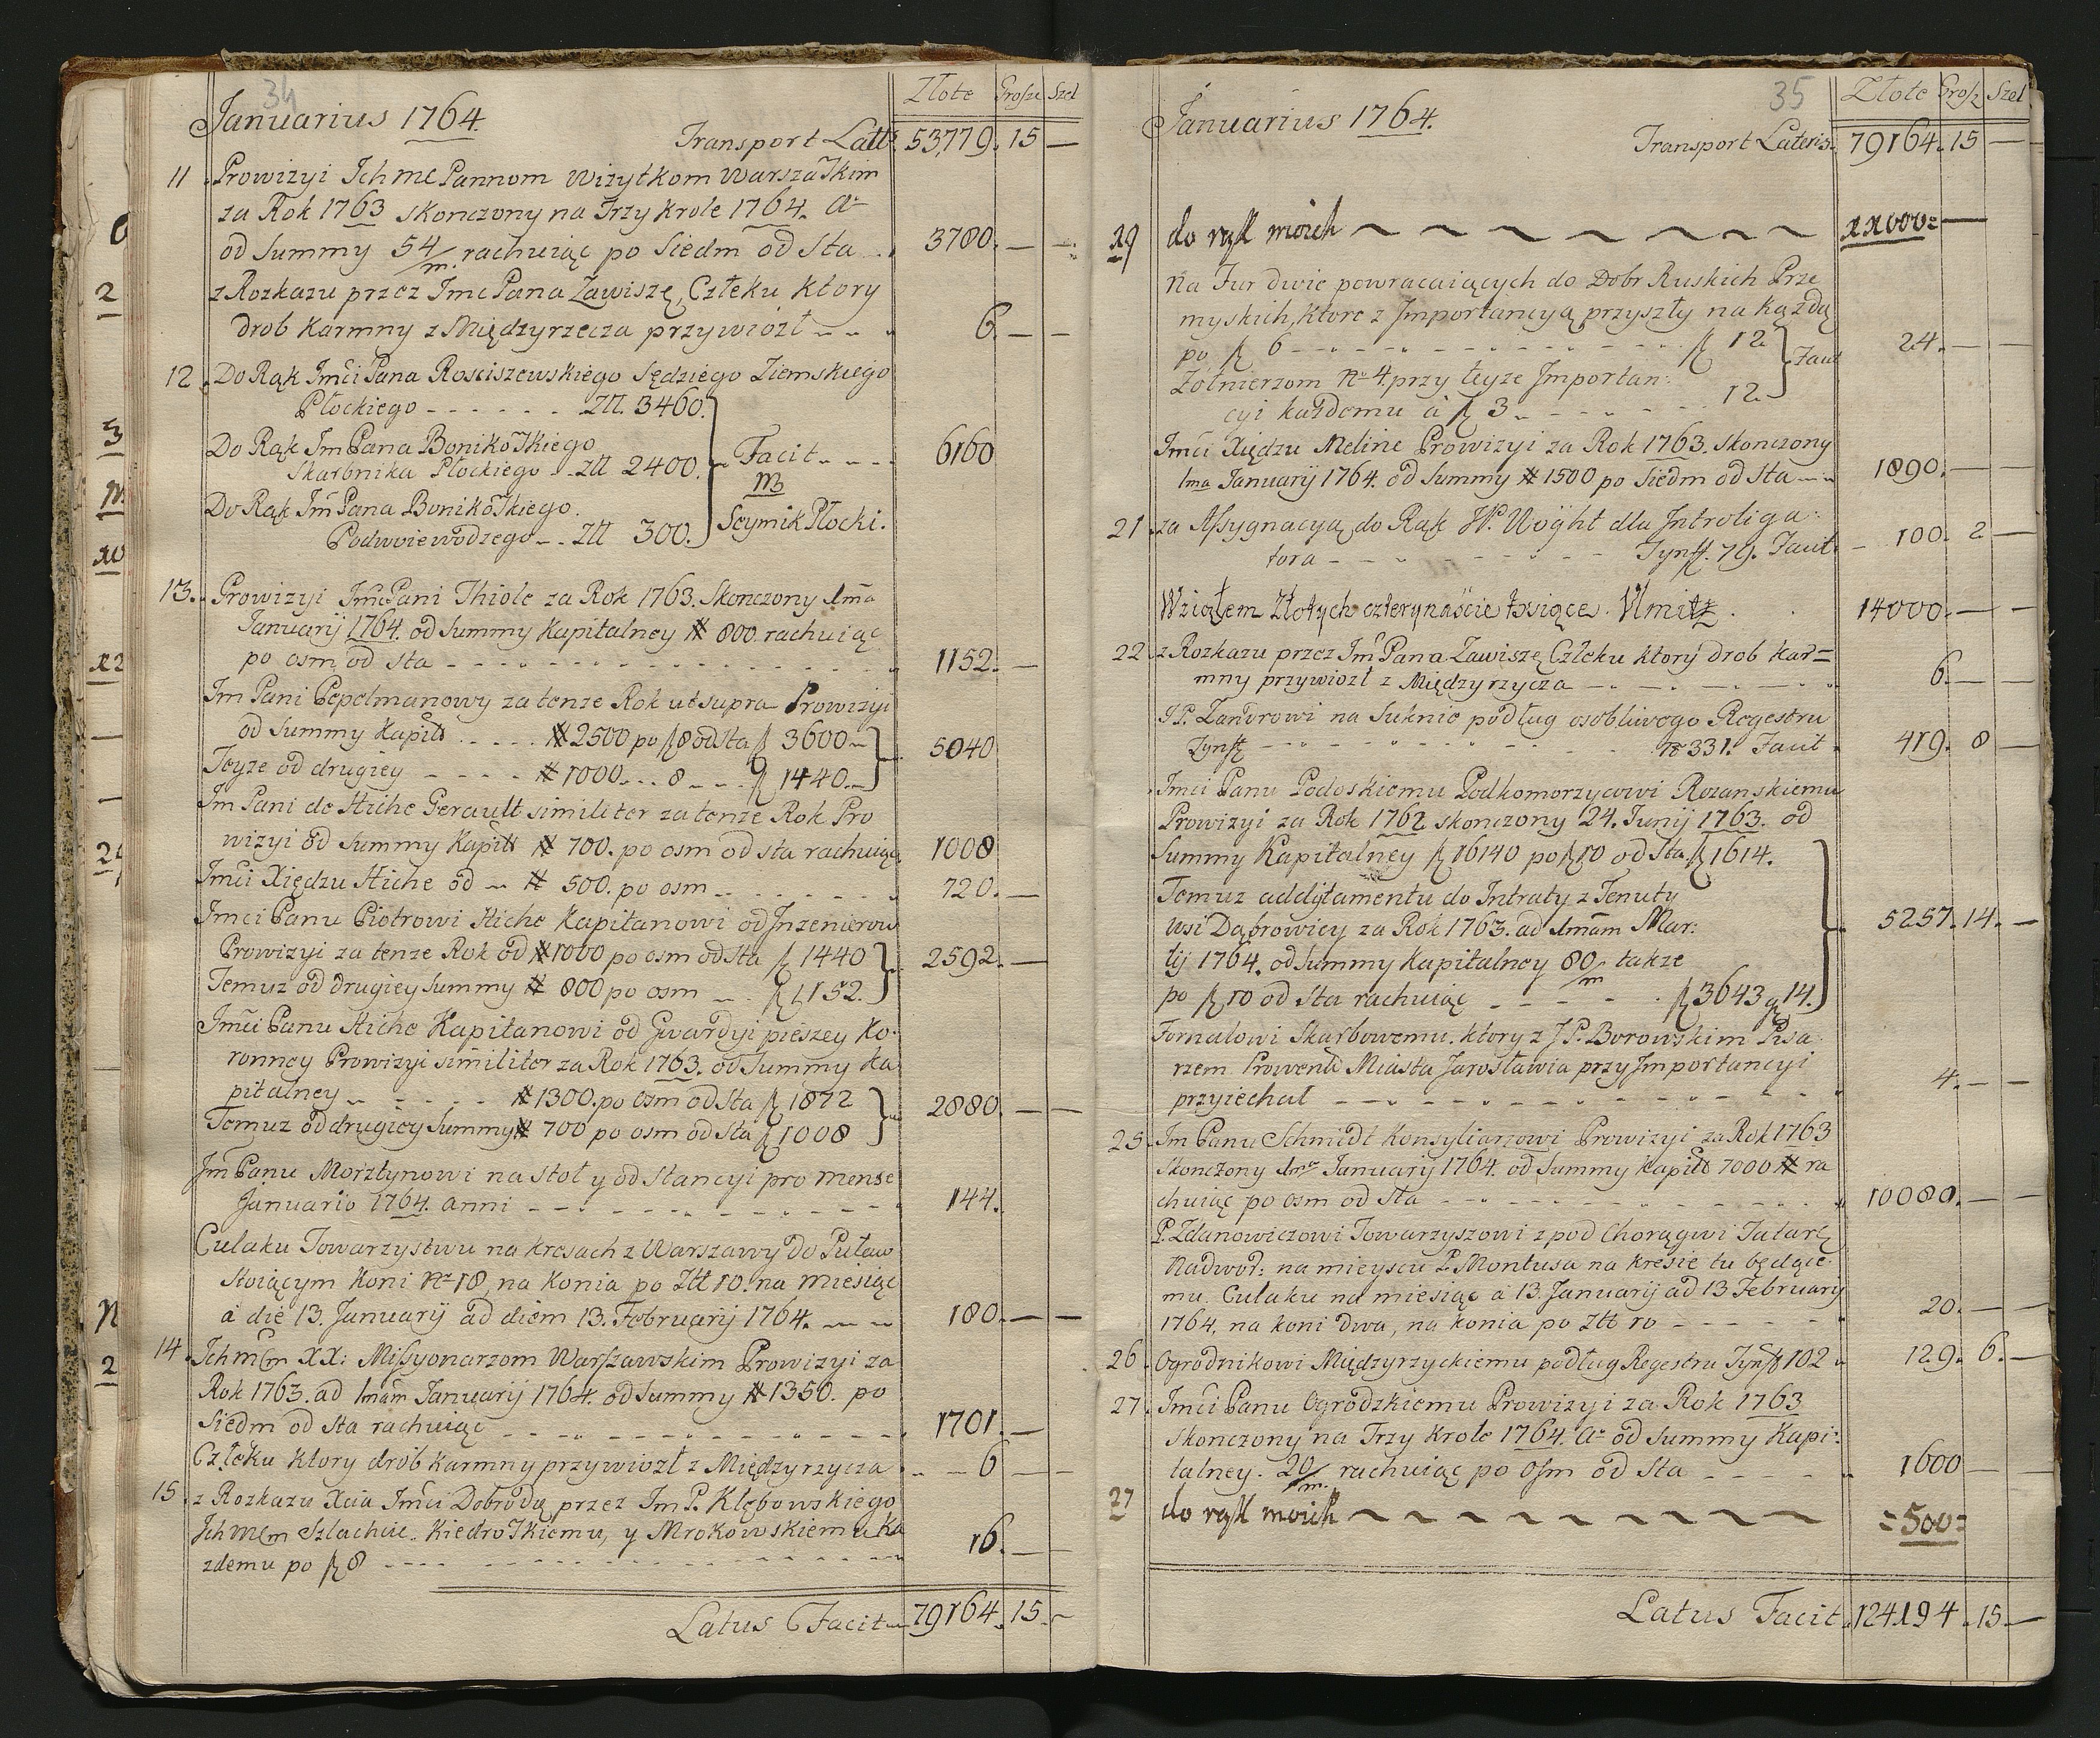 34
Januarius 1764.
Złote Grosze Szel
Transport Latt: 53779. 15 —
11. Prowizyi Ichmc Pannom Wizytkom Warszaskim
za Rok 1763 skonczony na Trzy Krole 1764. Aº
od Summy 54/m. rachuiąc po Siedm od Sta 3780. — —
z Rozkazu przez Jmc Pana Zawiszę, Człeku ktory
drob karmny z Międzyrzecza przywiozł 6. — —
12. Do Rąk Jmci Pana Rosciszewskiego Sędziego Ziemskiego
Płockiego - - - - - - Złł. 3460.
Do Rąk Jm Pana Bonikoskiego
Skarbnika Płockiego - Złł 2400. Facit 6160
NB
Do Rąk Jm Pana Bonikoskiego.
Podwoiewodzego - - Złł 300. Seymik Płocki.
13. Prowizyi Jmc Pani Thiole za Rok 1763. Skonczony 1ma
Januarij 1764. od Summy Kapitalney # 800. rachuiąc
po osm od sta - - - 1152. —
Jm Pani Pepelmanowy za tenze Rok ut supra Prowizyi
od Summy Kapitt - - - # 2500 po ƒ 8 od sta ƒ 3600
5040
Teyze od drugiey - - - - # 1000 - - 8 - - ƒ 1440.
Jm Pani de Hiche Gerault similiter za tenze Rok Pro
wizyi od Summy Kapitt # 700. po osm od sta rachuiąc 1008
Jmci Xiędzu Hiche od # 500. po osm - - - 720. —
Jmci Panu Piotrowi Hiche Kapitanowi od Inzenierow
Prowizyi za tenze Rok od # 1000 po osm od sta ƒ 1440 2592. —
Temuz od drugiey Summy # 800 po osm - - ƒ 1152.
Jmci Panu Hiche Kapitanowi od Gwardyi pieszey Ko:
ronney Prowizyi similiter za Rok 1763. od Summy Ka
pitalney - - - - # 1300. po osm od sta ƒ 1872 2880. — —
Temuz od drugiey Summy # 700 po osm od sta ƒ 1008
Jm Panu Morztynowi na stoł y od Stancyi pro mense
Januario 1764. anni - - - 144.
Culaku Towarzystwu na kresach z Warszawy do Puław
stoiącym koni Nº 18, na konia po Złł 10. na miesiąc
a die 13. Januarij ad diem 13. Februarij 1764. 180. — —
14. Ichmcm XX: Missyonarzom Warszawskim Prowizyi za
Rok 1763. ad 1mam Januarij 1764. od Summy # 1350. po
Siedm od Sta rachuiąc - - - 1701. —
Człeku ktory drob karmny przywiozł z Międzyrzycza 6 — —
15. z Rozkazu Xcia Jmci Dobrodą przez Jm P. Klębowskiego
Ichmcm Szlachcie. Kiedroskiemu, y Mrokowskiemu Ka
zdemu po ƒ 8 - - - 16. —
Latus Facit 79164. 15. —
35
Januarius 1764.
Złote Grosz Szel
Transport Lateris. 79164. 15 —
19 do rąk moich 11000= —
Na Fur dwie powracaiących do Dobr Ruskich Prze
myskich, ktore z Importancyą przyszły na każdą
po ƒ 6 - - - ƒ 12 24. — —
Facit
Żołnierzom Nº 4. przy teyze Importan:
cyi każdemu a ƒ 3 - - - 12.
Jmci Xiędzu Meline Prowizyi za Rok 1763. Skonczony
1ma Januarij 1764. od Summy # 1500 po Siedm od Sta 1890. — —
21. za Assygnacyą do Rąk JP. Woyht dla Introliga:
tora - - - Tynff. 79. Facit 100. 2 —
Wziąłem Złotych czterynaście tysięce. 14000. — —
22. z Rozkazu przez Jm Pana Zawiszę Człeku ktory drob kar=
mny przywiozł z Międzyrzycza - - - 6. — —
JP. Zandrowi na Suknie podług osobliwego Regestru
Tynff - - - Nº 331. Facit 419. 8 —
Jmci Panu Podoskiemu Podkomorzycowi Rozanskiemu
Prowizyi za Rok 1762 skonczony 24. Junij 1763. od
Summy Kapitalney ƒ 16140 po ƒ 10 od Sta ƒ 1614.
Temuz addytamentu do Intraty z Tenuty
wsi Dąbrowicy za Rok 1763. ad 1mam Mar: 5257. 14. —
tij 1764. od Summy Kapitalney 80/m takze
po ƒ 10 od Sta rachuiąc - - - ƒ 3643 g 14.
Fornalowi Skarbowemu. ktory z JP. Borowskim Pisa:
rzem Prowent Miasta Jarosławia przy Importancyi
przyiechał - - - 4. — —
25. Jm Panu Schmidt Konsyliarzowi Prowizyi za Rok 1763
Skonczony 1ma Januarij 1764. od Summy Kapitt 7000 # ra
chuiąc po osm od Sta - - - 10080. — —
P. Zdanowiczowi Towarzyszowi z pod Chorągwi Tatars
Nadwor: na mieyscu P. Montusa na kresie tu będące:
mu. Culaku na miesiąc a 13. Januarij ad 13 Februarij
1764. na koni dwa, na konia po Złł 10 - - - 20. — —
26. Ogrodnikowi Międzyrzyckiemu podług Regestru Tynff 102 129. 6. —
27. Jmci Panu Ogrodzkiemu Prowizyi za Rok 1763
Skonczony na Trzy Krole 1764. Aº od Summy Kapi:
talney. 20/m. rachuiąc po Osm od Sta - - - 1600 — —
27 do rąk moich =500=
Latus Facit 124194. 15. —